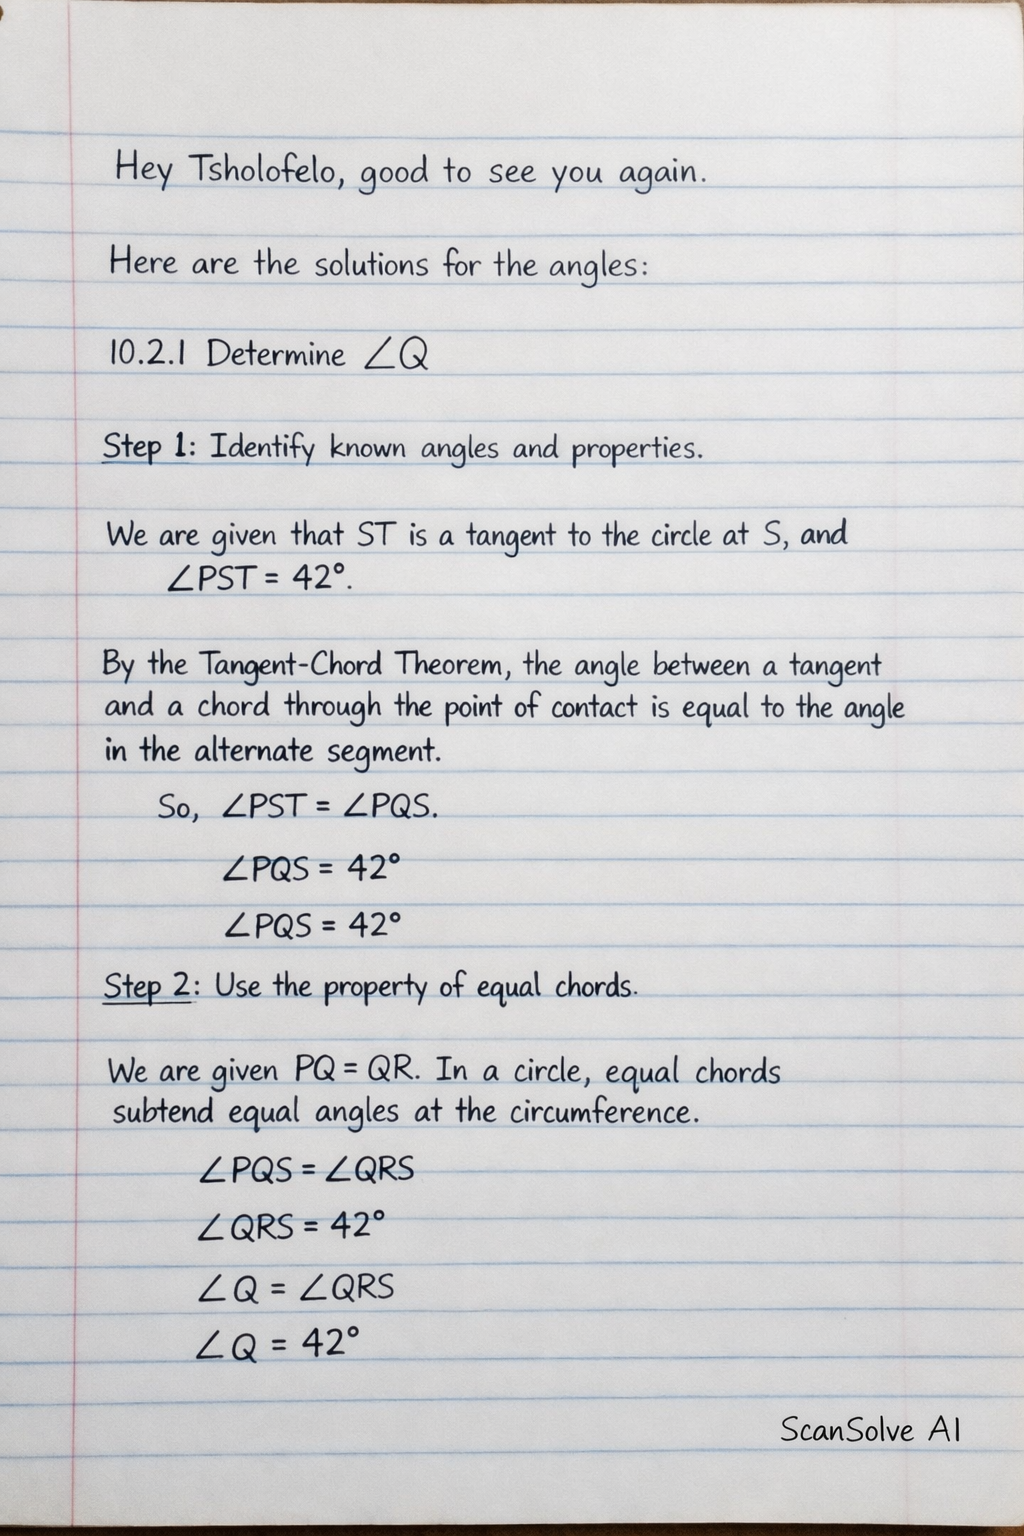 Hey Tsholofelo, good to see you again.
Here are the solutions for the angles:
10.2.1 Determine ∠Q
Step 1: Identify known angles and properties.
We are given that ST is a tangent to the circle at S, and
∠PST = 42°.
By the Tangent-Chord Theorem, the angle between a tangent
and a chord through the point of contact is equal to the angle
in the alternate segment.
So, ∠PST = ∠PQS.
∠PQS = 42°
∠PQS = 42°
Step 2: Use the property of equal chords.
We are given PQ = QR. In a circle, equal chords
subtend equal angles at the circumference.
∠PQS = ∠QRS
∠QRS = 42°
∠Q = ∠QRS
∠Q = 42°
ScanSolve AI